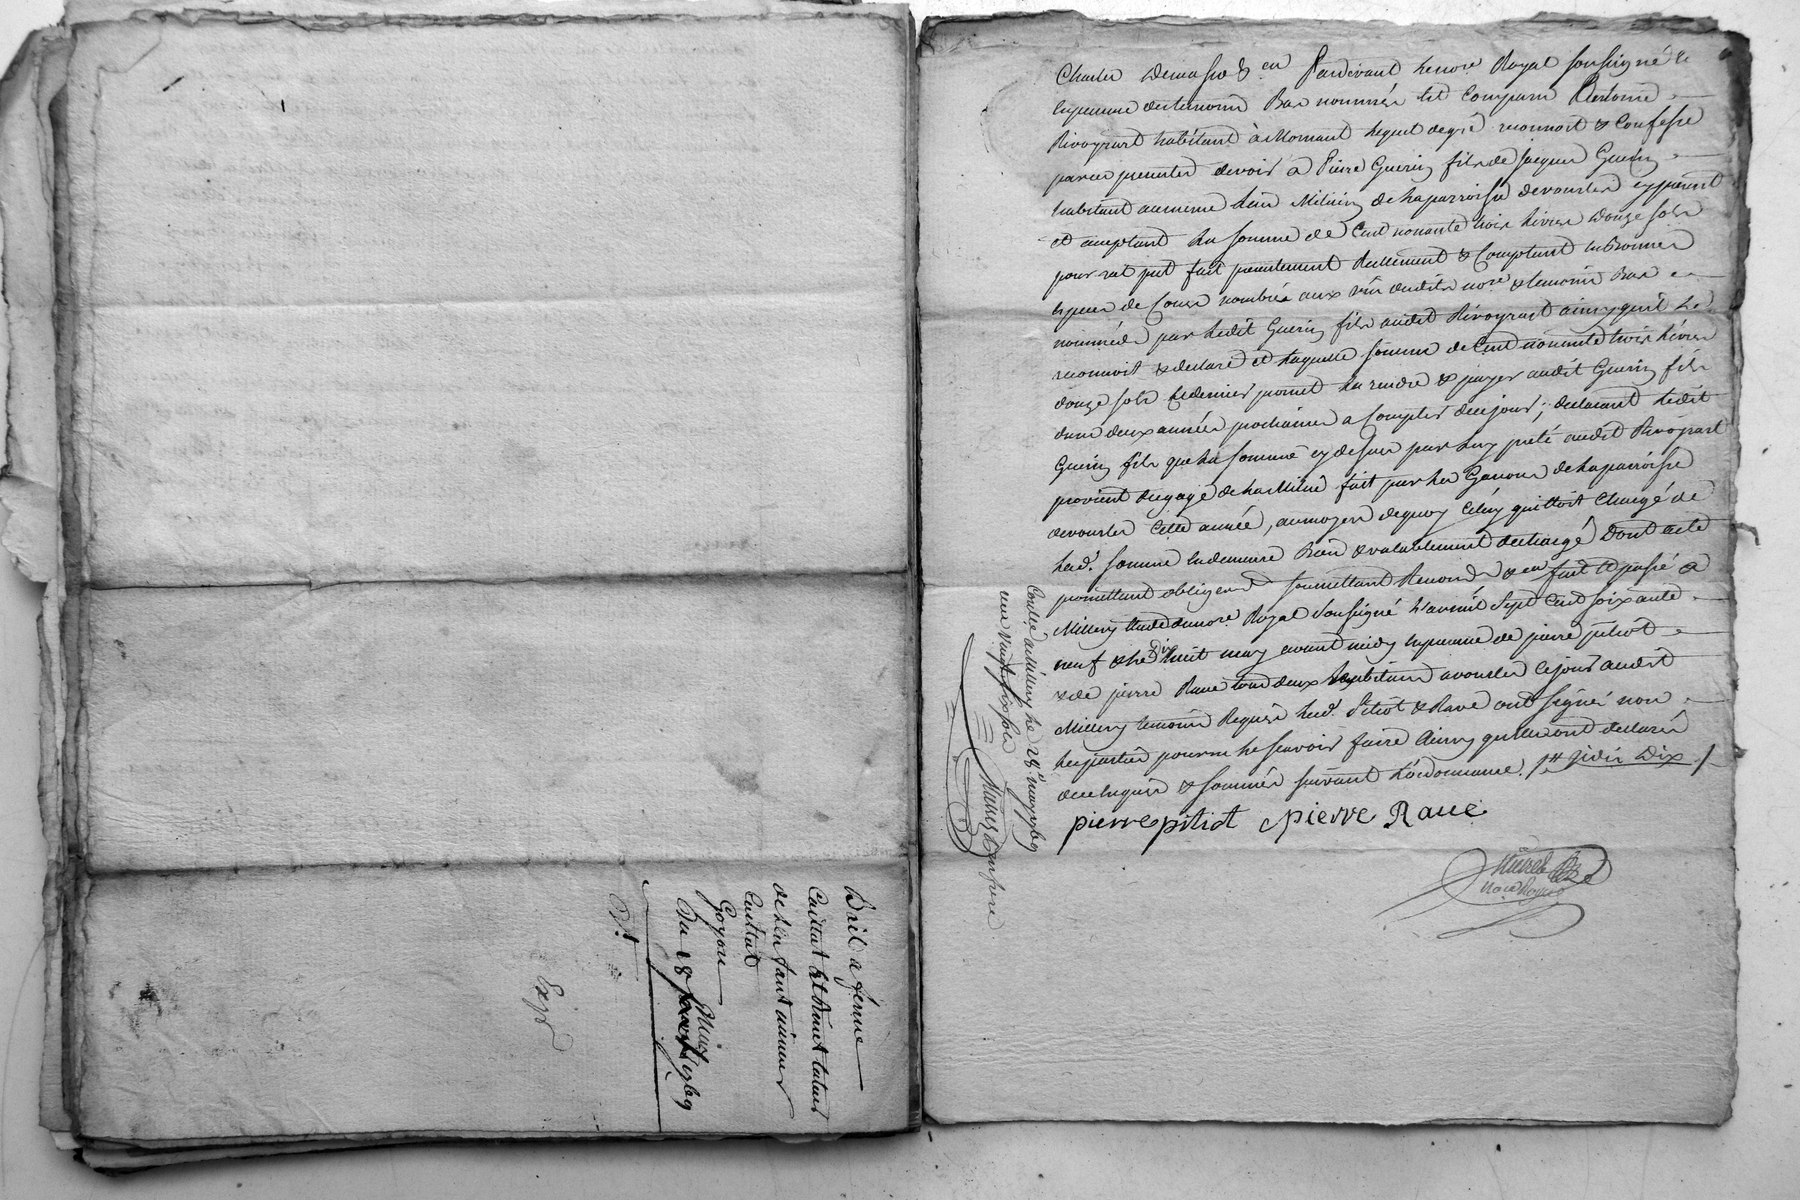 Bail a ferme
Caillat et tuteur
de l'enfant mineur
Caillat
Goyon
Du 18 may 1769
Exp
pardevant le nore Royal soussigné &
en presence des temoins Bas nommés fut Comparu Antoine
Rivoyrard habitant à Mornant lequel degré reconnoit & Confesse
par ces presentes devoir a Pierre Guerin fils de Jacques Guerin
habitant au meme lieu Milicien de la parroisse devourles cy present
et acceptant la somme de Cent nonante trois livres douze sols
pour pret fait presentement Reellement & Comptant en Bonnes
especes de Cours nombrées aux vu desdits nore & temoins Bas
nommés par ledit Guerin fils audit Rivoyrard ainsy qu'il le
reconnoit & declare et laquelle somme de Cent nonante trois livres
douze sols ce dernier promet la rendre & payer audit Guerin fils
dans deux années prochaines a Compter de ce jour; declarant ledit
Guerin fils que la somme cy dessus par luy preté audit Rivoyrard
provient du gage de la Milice fait par les Garcons de la parroisse
devourles Cette année, au moyen de quoy Celuy qui ettoit Chargé de
lad. somme en demeure Bien & valablement dechargé Dont acte
promettant obligeant soumettant Renoncant & ca fait & passé a
Millery Etude du nore Royal soussigné L'an mil Sept Cent soixante
neuf & le Dix huit may avant midy en presence de pierre pitiot
& de pierre Rave tous deux habitans a vourles ce jour audit
Millery temoins Requis lesd. Pitiot & Rave ont signé non
les parties pour ne le scavoir faire Ainsy qu'elles ont declaré
de ce enquis & sommés suivant l'ordonnance.
pierre pitiot pierre Rave
nore Royal
Conllé a Millery le 28 may 1769
recu vingt six sols